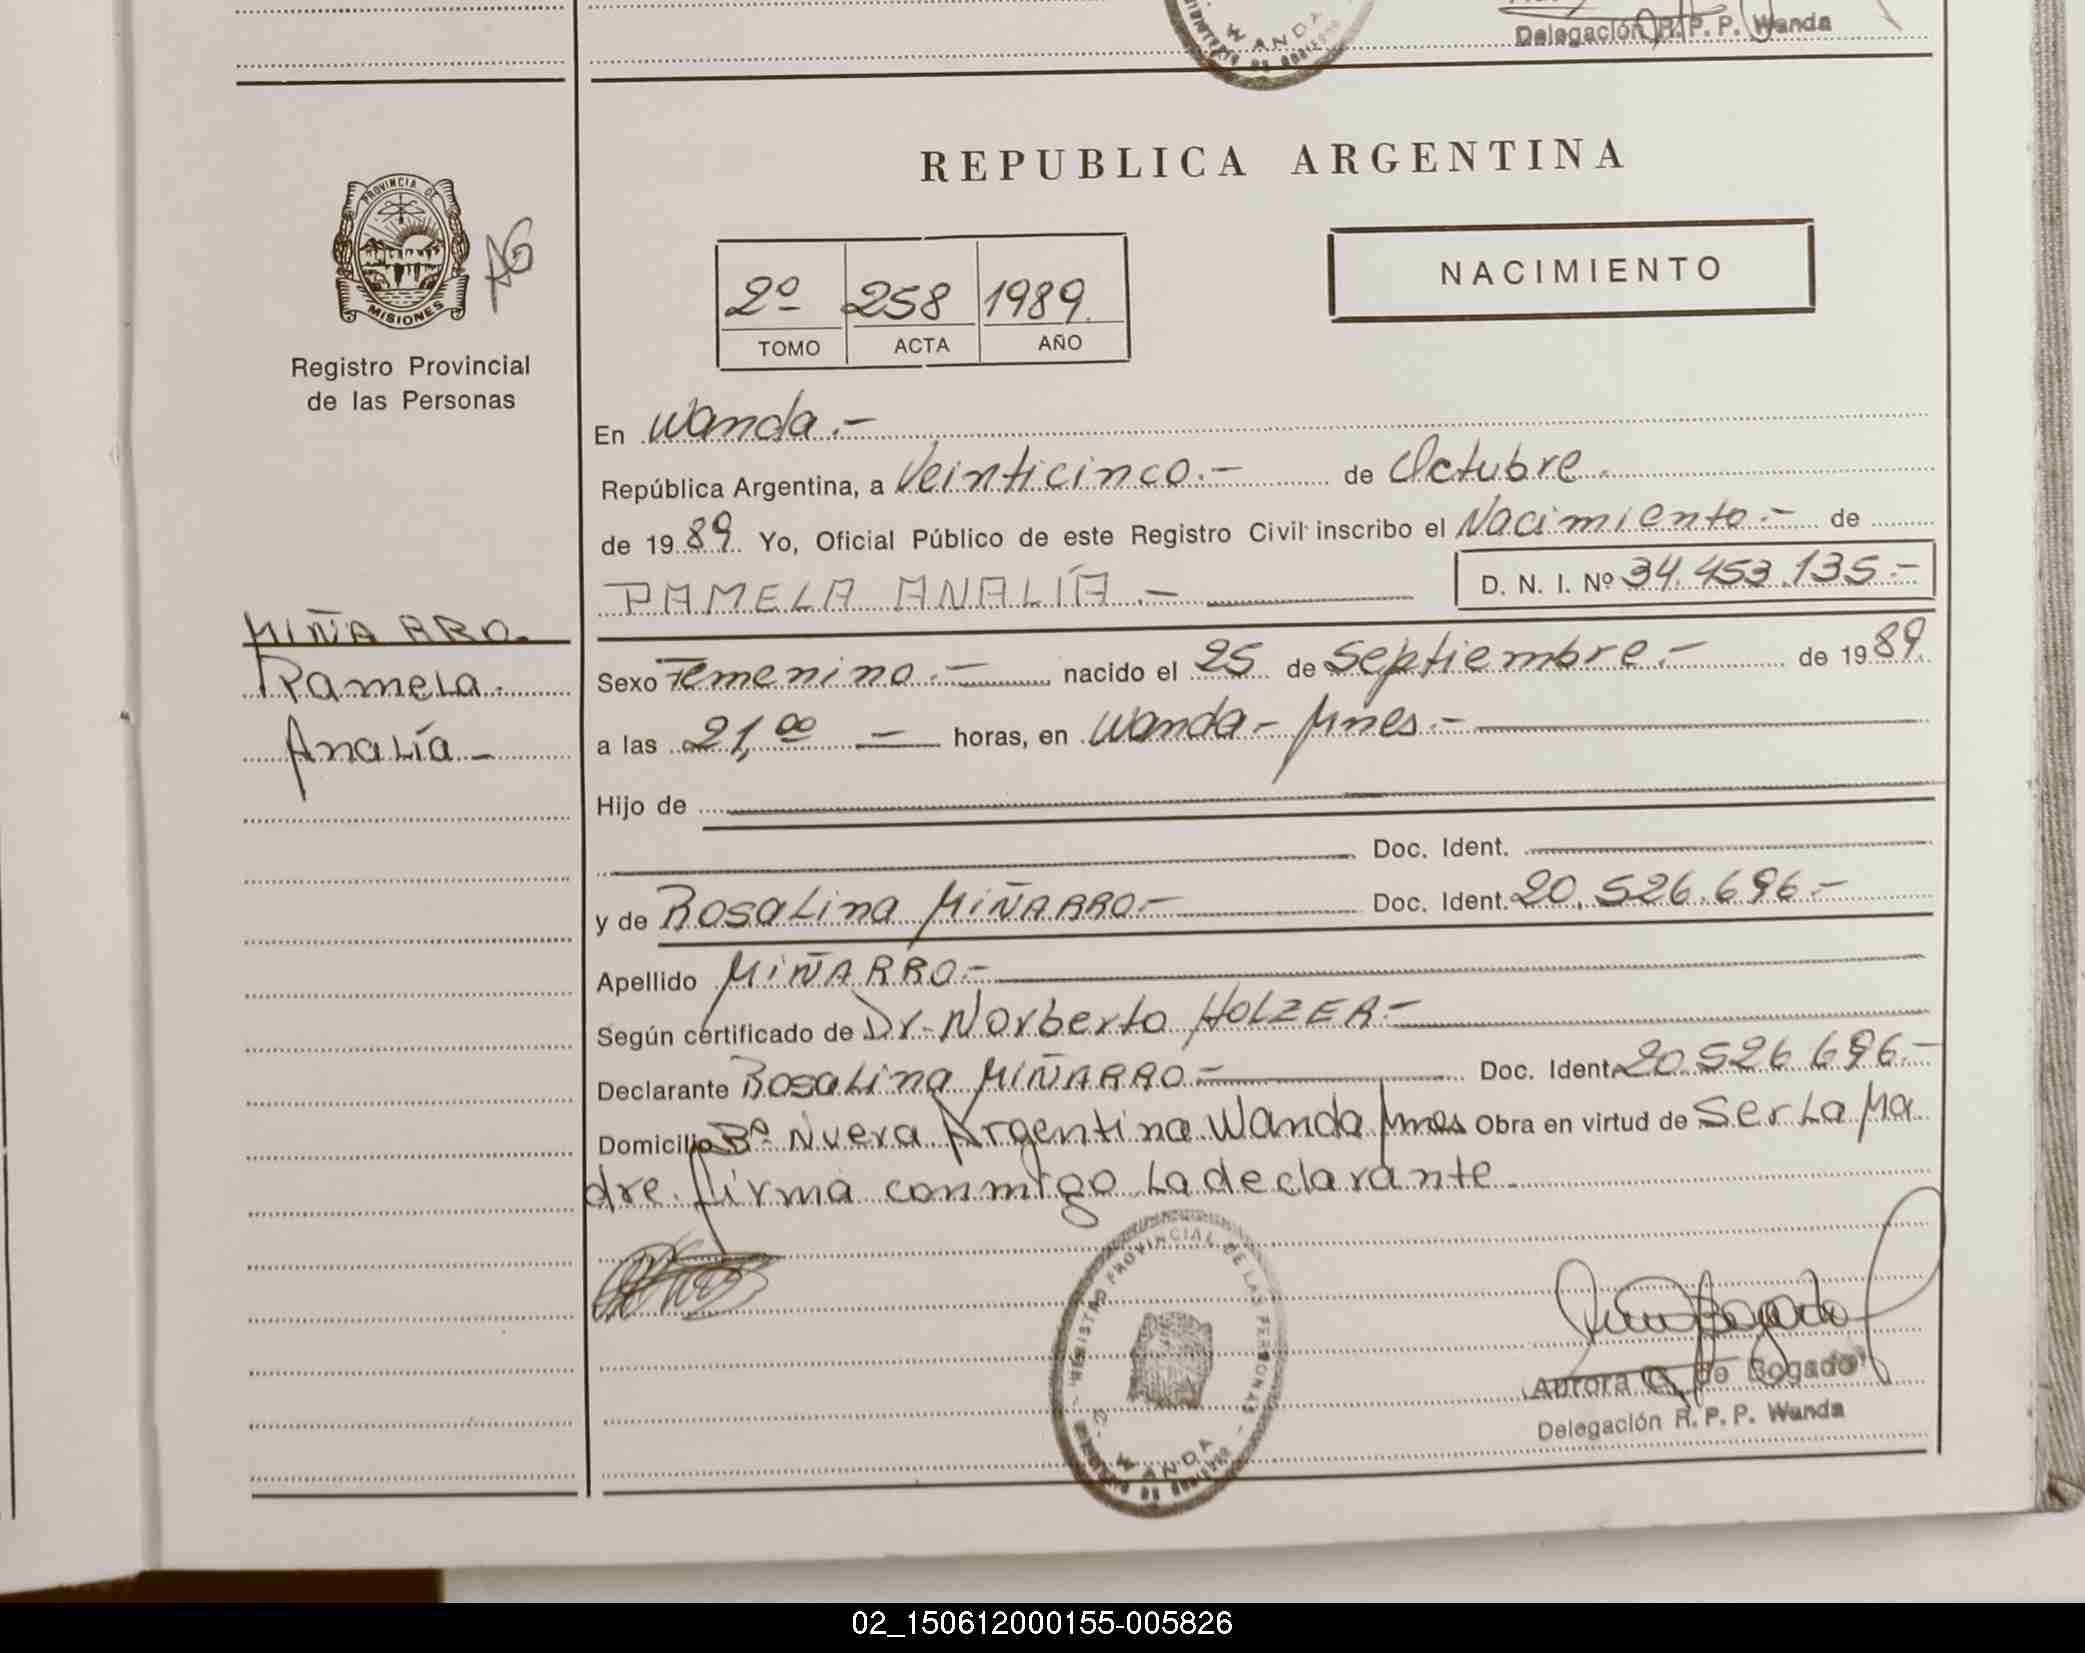 WANDA
Delegación R. P. P. Wanda
REPUBLICA ARGENTINA
PROVINCIA DE
MISIONES
AG
2º 258 1989.
TOMO ACTA AÑO
NACIMIENTO
Registro Provincial
de las Personas
En Wanda.-
República Argentina, a Veinticinco.- de Octubre.
de 1989. Yo, Oficial Público de este Registro Civil inscribo el Nacimiento.- de
PAMELA ANALÍA.- D. N. I. Nº 34.453.135.-
MIÑARRO.
Pamela.
Analía -
Sexo Femenino.- nacido el 25 de Septiembre.- de 1989.
a las 21,00 - horas, en Wanda - Mnes.-
Hijo de
Doc. Ident.
y de Rosalina MIÑARRO.- Doc. Ident. 20.526.696.-
Apellido MIÑARRO.-
Según certificado de Dr. Norberto HOLZER-
Declarante Rosalina MIÑARRO.- Doc. Ident. 20.526.696.-
Domicilio Bº Nueva Argentina Wanda Mnes Obra en virtud de Ser La Ma
dre. firma conmigo La declarante.
REGISTRO PROVINCIAL DE LAS PERSONAS
WANDA
Aurora G. de Bogado
Delegación R. P. P. Wanda
02_150612000155-005826